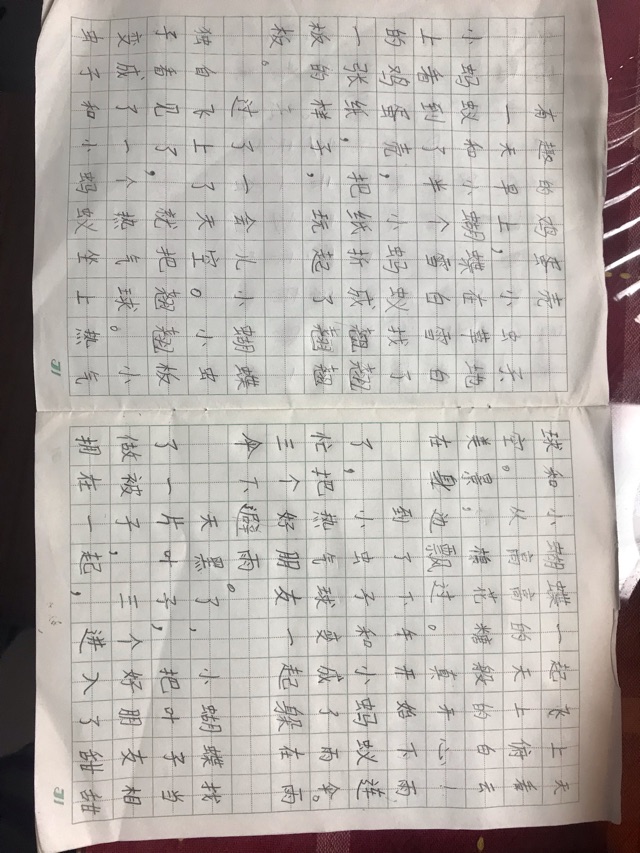 有趣的鸡蛋壳
一天早上,小虫子、
小蚂蚁和小蝴蝶在草地
上看到了半个雪白雪白
的鸡蛋壳,小蚂蚁找了
一张纸,把纸折成翘翘
板的样子,玩起了翘翘
板。
过了一会儿小蝴蝶
独自飞上了天空。小虫
子看见了,就把翘翘板
变成了一个热气球。小
虫子和小蚂蚁坐上热气
31
球和小蝴蝶一起飞上天
空。从高高的天上俯看
美景,棉花糖般的白云
在身边飘过。真开心!
到了下午开始下雨
了,小虫子和小蚂蚁连
忙把热气球变成了雨伞。
三个好朋友一起躲在雨
伞下避雨。
天黑了,小蝴蝶找
了一片叶子,把叶子当
做被子,三个好朋友相
拥在一起,进入了甜甜
31